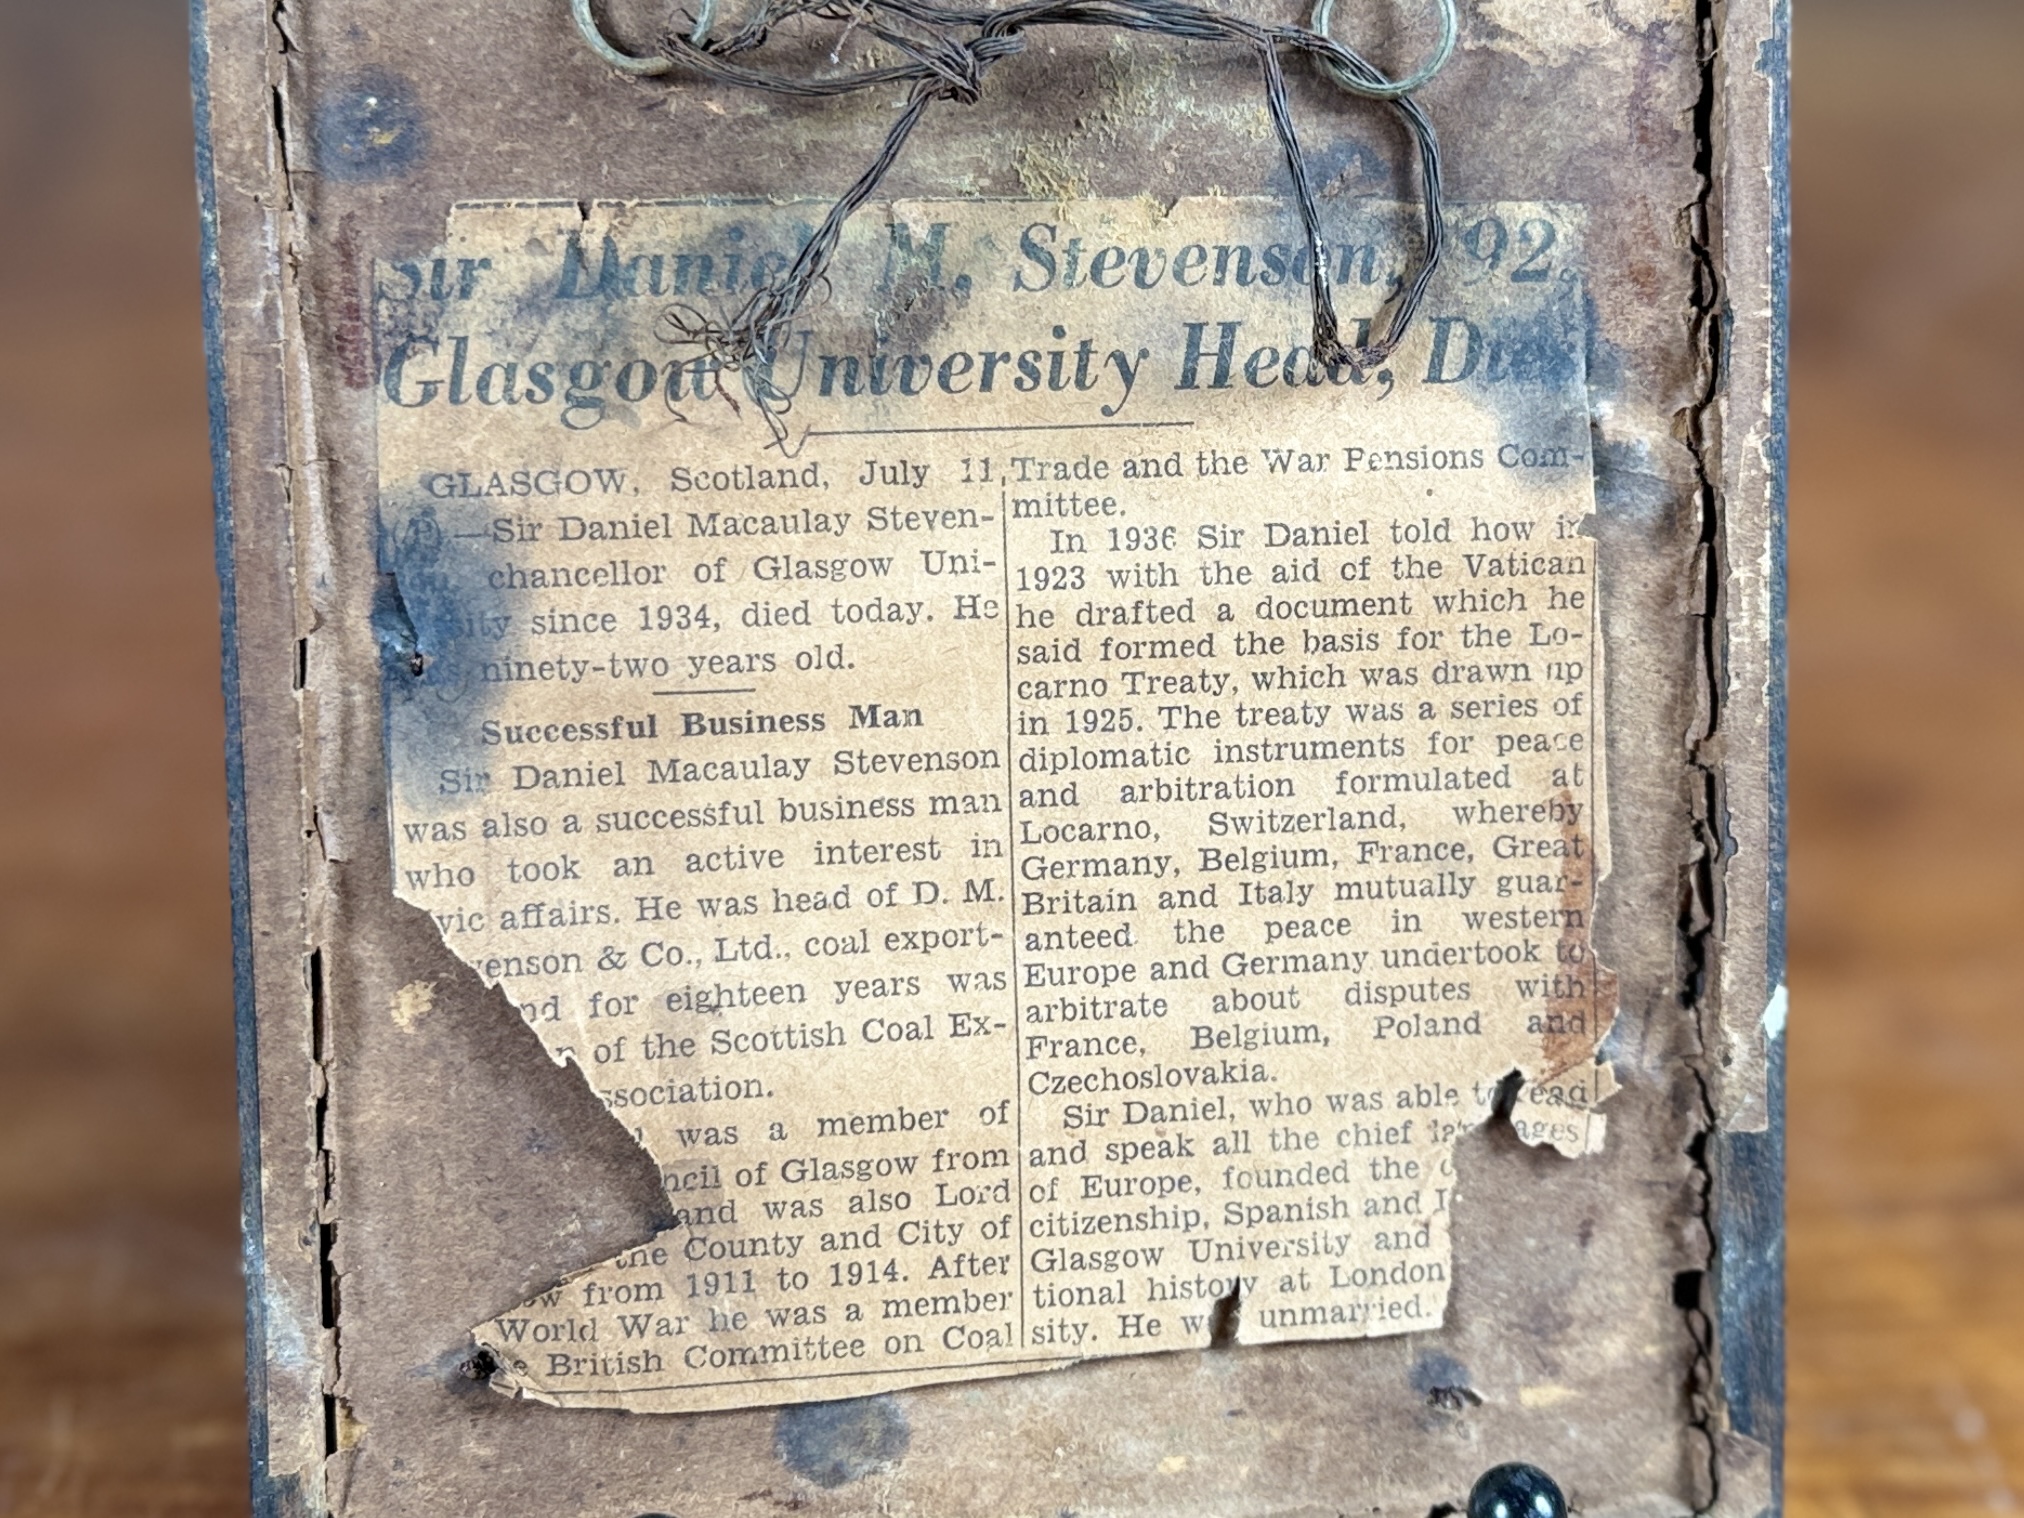 Sir Daniel M. Stevenson, 92,
Glasgow University Head, Dies
GLASGOW, Scotland, July 11,
(AP)—Sir Daniel Macaulay Steven-
chancellor of Glasgow Uni-
sity since 1934, died today. He
ninety-two years old.
Successful Business Man
Sir Daniel Macaulay Stevenson
was also a successful business man
who took an active interest in
vic affairs. He was head of D. M.
venson & Co., Ltd., coal export-
nd for eighteen years was
n of the Scottish Coal Ex-
ssociation.
l was a member of
ncil of Glasgow from
and was also Lord
the County and City of
ow from 1911 to 1914. After
World War he was a member
e British Committee on Coal
Trade and the War Pensions Com-
mittee.
In 1936 Sir Daniel told how in
1923 with the aid of the Vatican
he drafted a document which he
said formed the basis for the Lo-
carno Treaty, which was drawn up
in 1925. The treaty was a series of
diplomatic instruments for peace
and arbitration formulated at
Locarno, Switzerland, whereby
Germany, Belgium, France, Great
Britain and Italy mutually guar-
anteed the peace in western
Europe and Germany undertook to
arbitrate about disputes with
France, Belgium, Poland and
Czechoslovakia.
Sir Daniel, who was able to read
and speak all the chief languages
of Europe, founded the c
citizenship, Spanish and I
Glasgow University and
tional history at London
sity. He was unmarried.